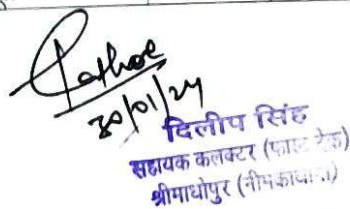 Rathore
30/01/24
दिलीप सिंह
सहायक कलक्टर (फास्ट ट्रेक)
श्रीमाधोपुर (नीमकाथाना)